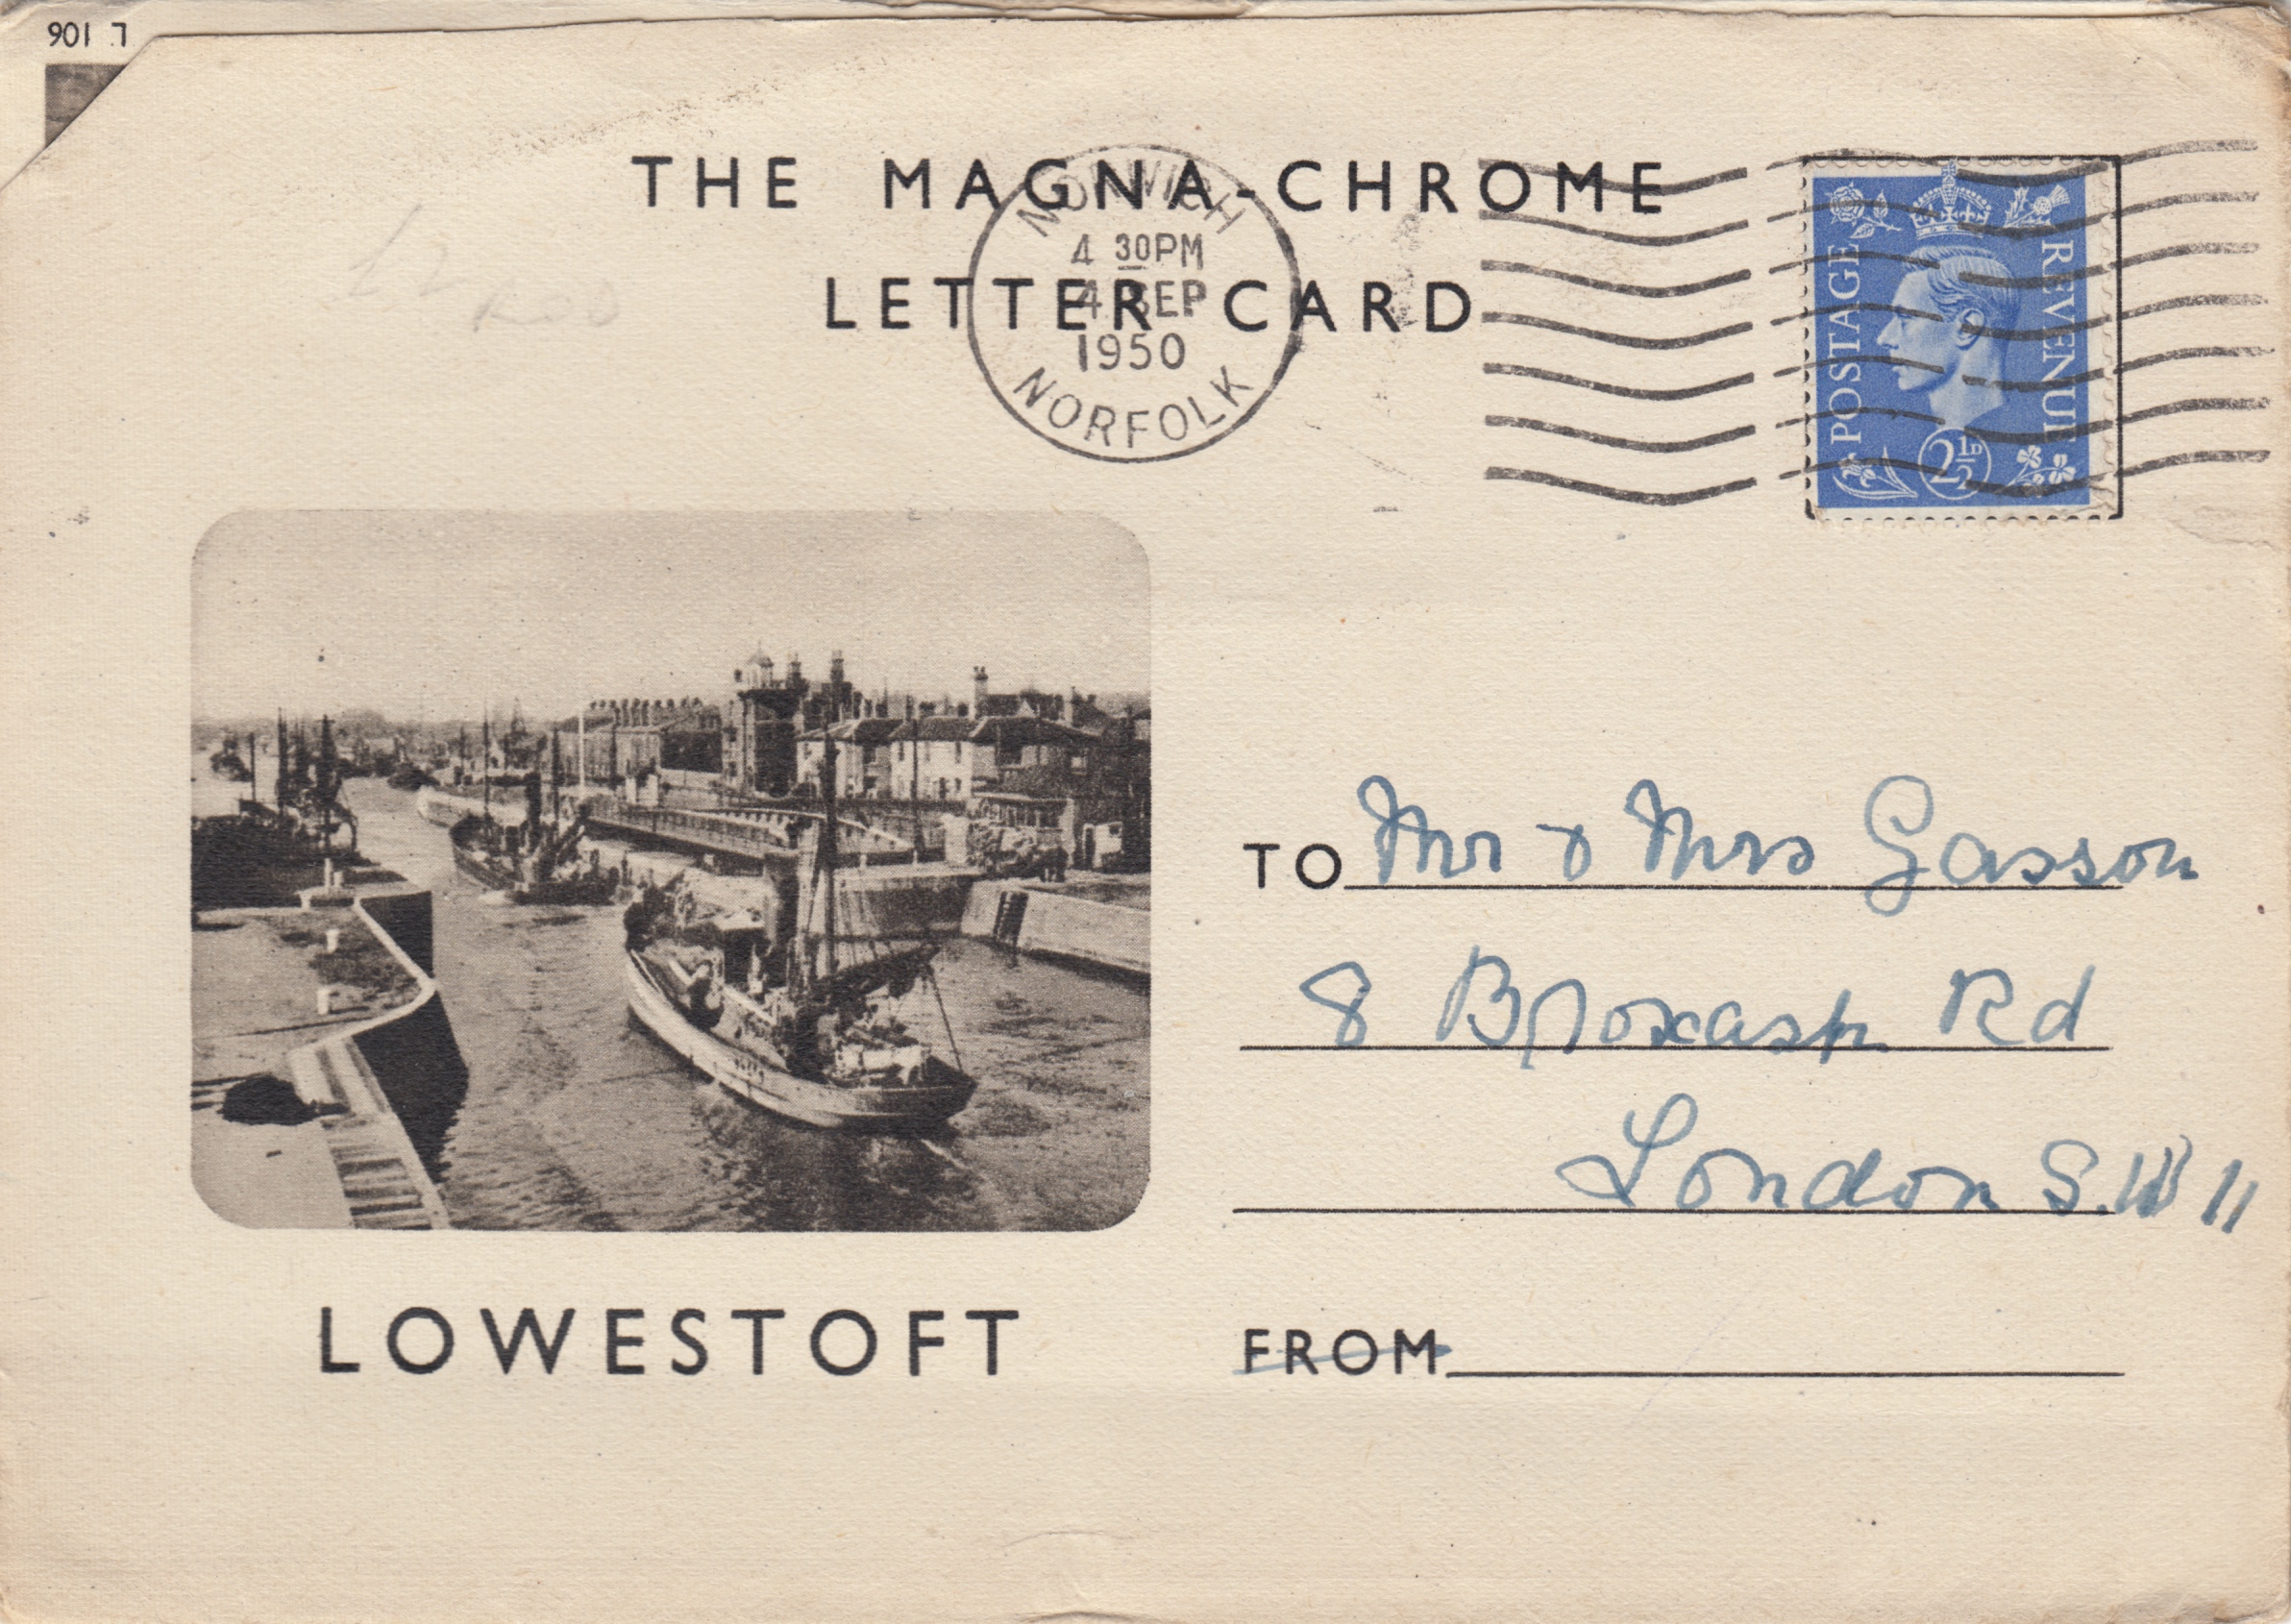 L. 106
THE MAGNA-CHROME
LETTER CARD
NORWICH
4 30PM
4 SEP
1950
NORFOLK
POSTAGE
REVENUE
2½D
TO Mr & Mrs Gasson
8 Broxash Rd
London S.W 11
LOWESTOFT
FROM